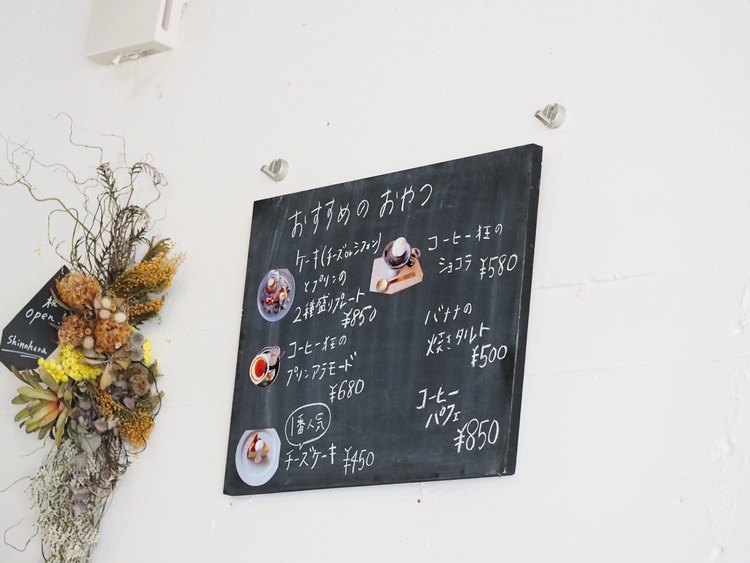 おすすめの おやつ
ケーキ(チーズorシフォン)
とプリンの
2種盛りプレート
¥850
コーヒー狂の
プリンアラモード
¥680
1番人気
チーズケーキ ¥450
コーヒー狂の
ショコラ ¥580
バナナの
焼きタルト
¥500
コーヒー
パフェ
¥850
open
Shinohara